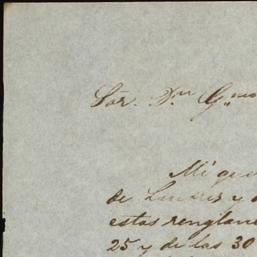 Sor. Dn. G
Mi que
de Londres y
estos renglone
25 y de las 30